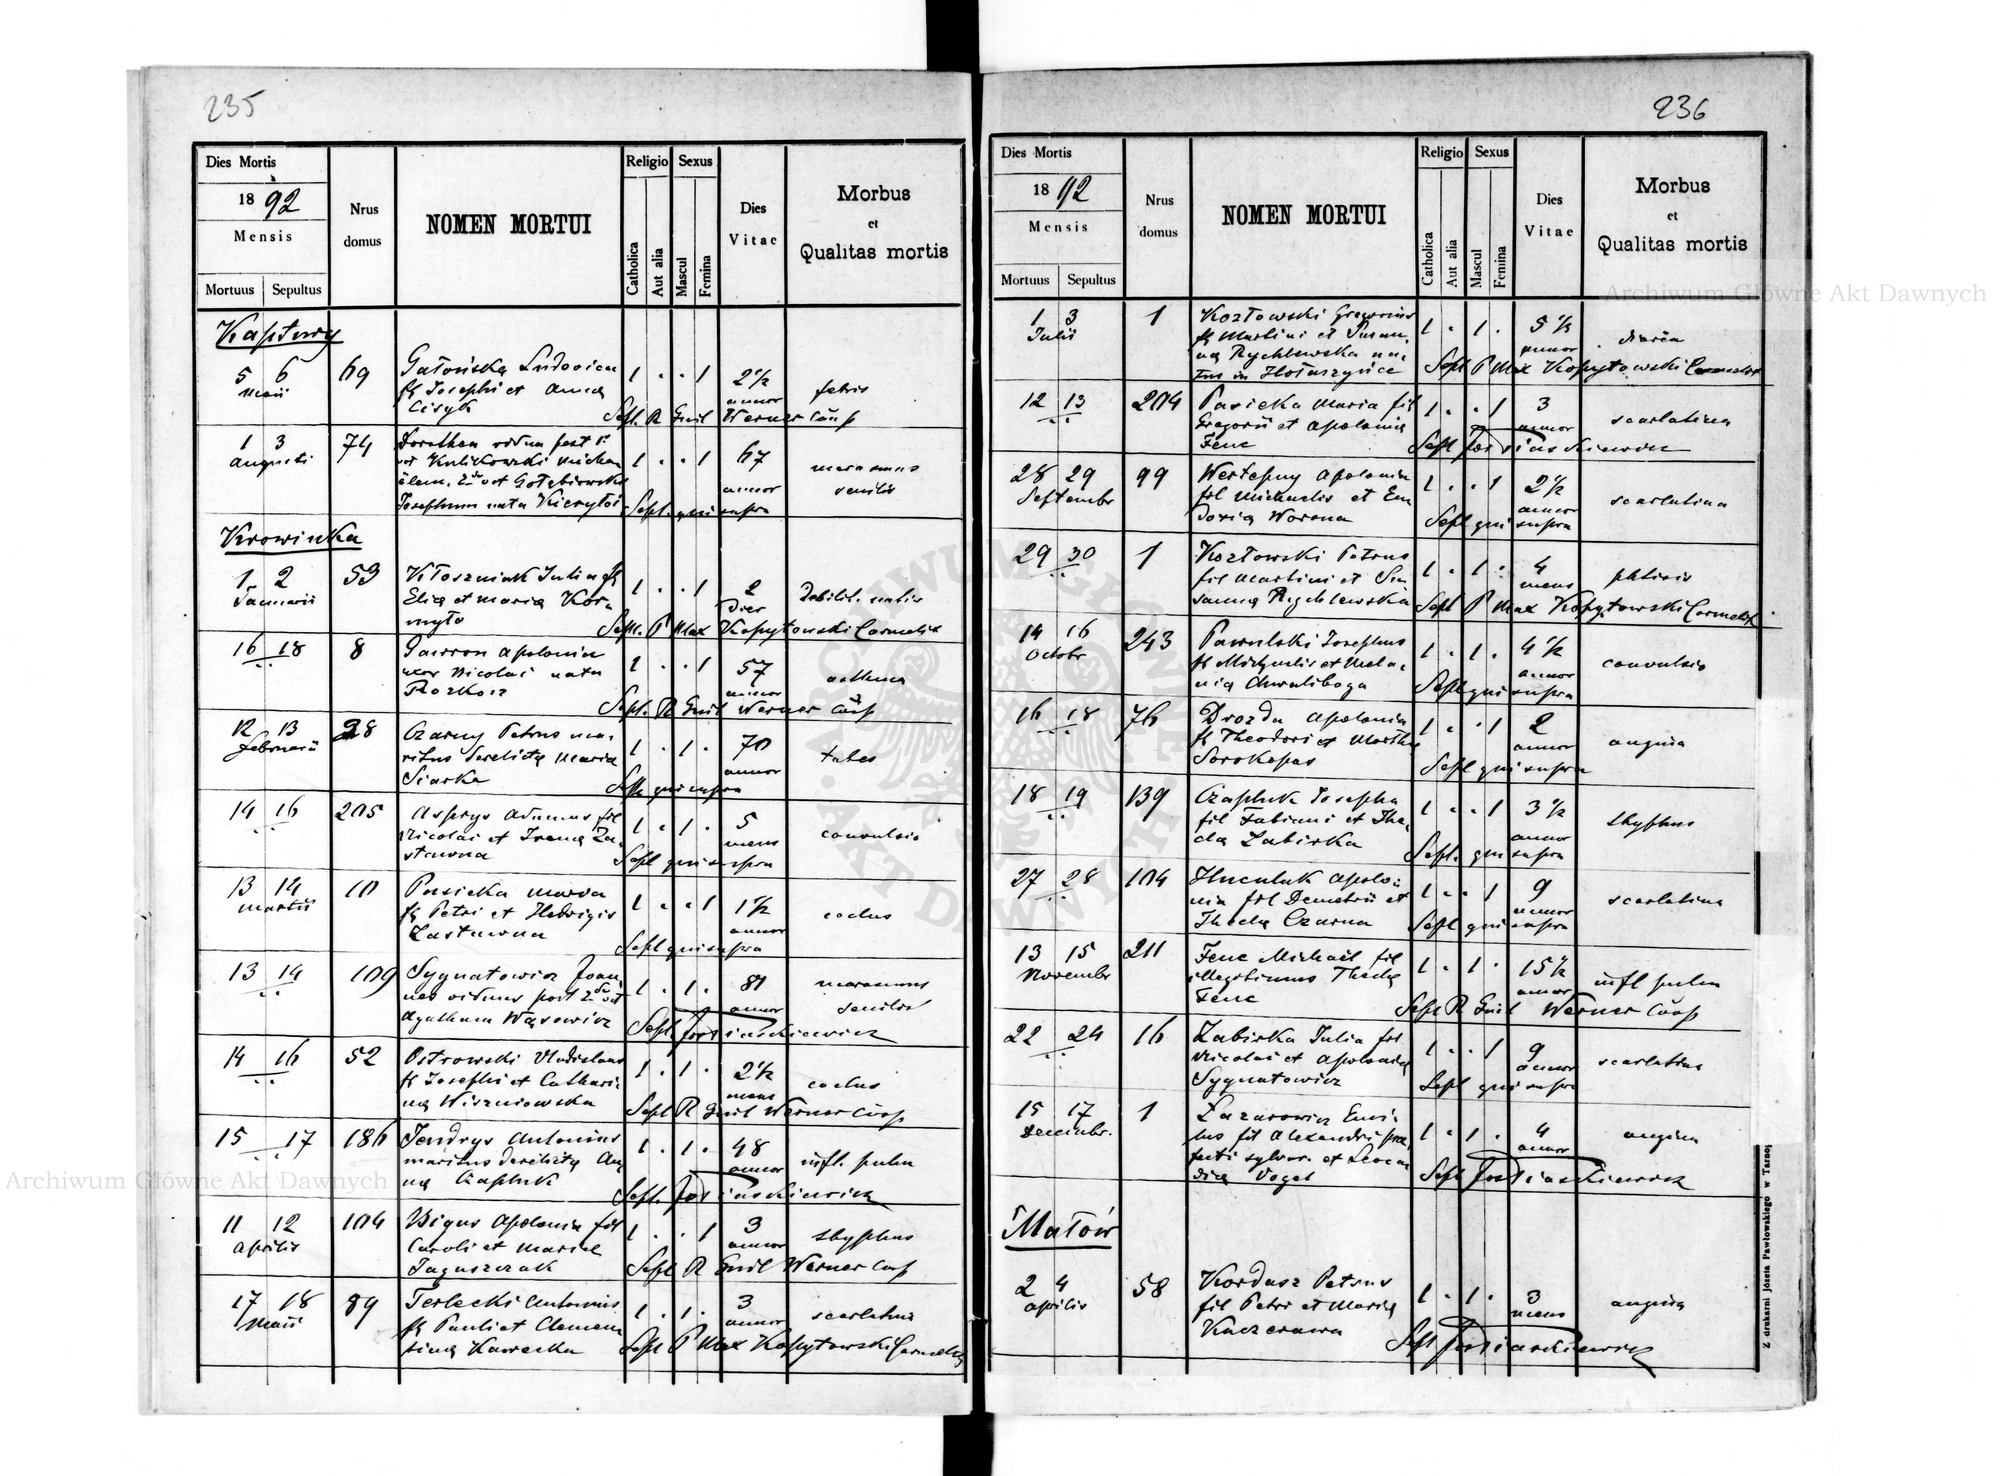 235
Dies Mortis
1892
Mensis
Mortuus Sepultus
Nrus
domus
NOMEN MORTUI
Religio
Catholica
Aut alia
Sexus
Mascul
Femina
Dies
Vitae
Morbus
et
Qualitas mortis
5 6
Maii
69
fil Josephi et Anna
1 . . 1
2 1/2
annor
febris
Sepl. R Emil Werner Coop
1 3
Augusti
74
Dorothea vidua post 1
1 . . 1
67
annor
marasmus
senilis
Sepl. qui supra
Krowinka
1 2
Januarii
53
Elia et Maria Kor-
myto
1 . . 1
2
Dies
Debilit.
Sepl. P Max Kopytowski Carmelit
16 18
8
Apolonia
uxor Nicolai nata
Rozkosz
1 . . 1
57
annor
asthma
Sepl. R Emil Werner Coop
12 13
Februarii
28
Czarny Petrus ma-
ritus derelicta Maria
Siarka
1 . 1 .
70
annor
tabes
Sepl qui supra
14 16
205
Nicolai et Irena Za-
stawna
1 . 1 .
5
mens
convulsio
Sepl qui supra
13 14
Martii
Pasieka Maria
fil Petri et Hedvigis
Zastawna
1 . . 1
1 1/2
annor
Sepl qui supra
13 14
109
Sygnatowicz Joan-
nes viduus post 2do vot
Agatham Wąsowicz
1 . 1 .
81
annor
marasmus
senilis
Sepl
14 16
52
Ostrowski Vladislaus
fil Josephi et Cathari-
na Wiszniowska
1 . 1 .
2 1/2
mens
Sepl R Emil Werner Coop
15 17
186
Jendrys Antonius
maritus derelicta An-
na Czapluk
1 . 1 .
48
annor
infl. pulm
Sepl.
11 12
Aprilis
104
Apolonia fil
Caroli et Maria
Jaguszczak
1 . . 1
3
annor
thyphus
Sepl R Emil Werner Coop
17 18
Maii
89
Terlecki Antonius
fil Pauli et Clemen-
tina Kawecka
1 . 1 .
3
annor
scarlatina
Sepl P Max Kopytowski Carmelit
236
Dies Mortis
1892
Mensis
Mortuus Sepultus
Nrus
domus
NOMEN MORTUI
Religio
Catholica
Aut alia
Sexus
Mascul
Femina
Dies
Vitae
Morbus
et
Qualitas mortis
1 3
Julii
1
Kozłowski Gregorius
fil Martini et Susan-
na Rychlewska na-
tus in
1 . 1 .
5 1/2
annor
Sepl P Max Kopytowski Carmelit
12 13
204
Pasieka Maria fil
Gregorii et Apolonia
Fenc
1 . . 1
3
annor
scarlatina
Sepl
28 29
Septembr
99
Wertepny Apolonia
fil Michaelis et Eu-
doxia Worona
1 . . 1
2 1/2
annor
scarlatina
Sepl qui supra
29 30
1
Kozłowski Petrus
fil Martini et Su-
sanna Rychlewska
1 . 1 .
4
mens
phtisis
Sepl P Max Kopytowski Carmelit
14 16
Octobr
243
Pawulski Josephus
fil Michaelis et Mela-
nia Chwaliboga
1 . 1 .
4 1/2
annor
convulsio
Sepl qui supra
16 18
76
Drozda Apolonia
fil Theodori et Martha
Sorokopas
1 . . 1
2
annor
angina
Sepl qui supra
18 19
139
Czapluk Josepha
fil Fabiani et The-
cla Zabirka
1 . . 1
3 1/2
annor
thyphus
Sepl. qui supra
27 28
104
Hucaluk Apolo-
nia fil Demetrii et
Thecla Czarna
1 . . 1
9
annor
scarlatina
Sepl qui supra
13 15
Novembr
211
Fenc Michaël fil
illegitimus Thecla
Fenc
1 . 1 .
15 1/2
annor
infl pulm
Sepl R Emil Werner Coop
22 24
16
Zabirka Julia fil
Nicolai et Apolonia
Sygnatowicz
1 . . 1
9
annor
scarlatina
Sepl qui supra
15 17
Decembr.
1
Lazarowicz Emi-
lus fil Alexandri prae-
fecti sylvar. et Leoca-
dia Vogel
1 . 1 .
4
annor
angina
Sepl
Małów
2 4
Aprilis
58
Kordasz Petrus
fil Petri et Maria
Kaczerawa
1 . 1 .
3
mens
angina
Sepl
Z drukarni Józefa Pawłowskiego w Tarnop
Archiwum Główne Akt Dawnych
Archiwum Główne Akt Dawnych
ARCHIWUM GŁÓWNE
AKT DAWNYCH